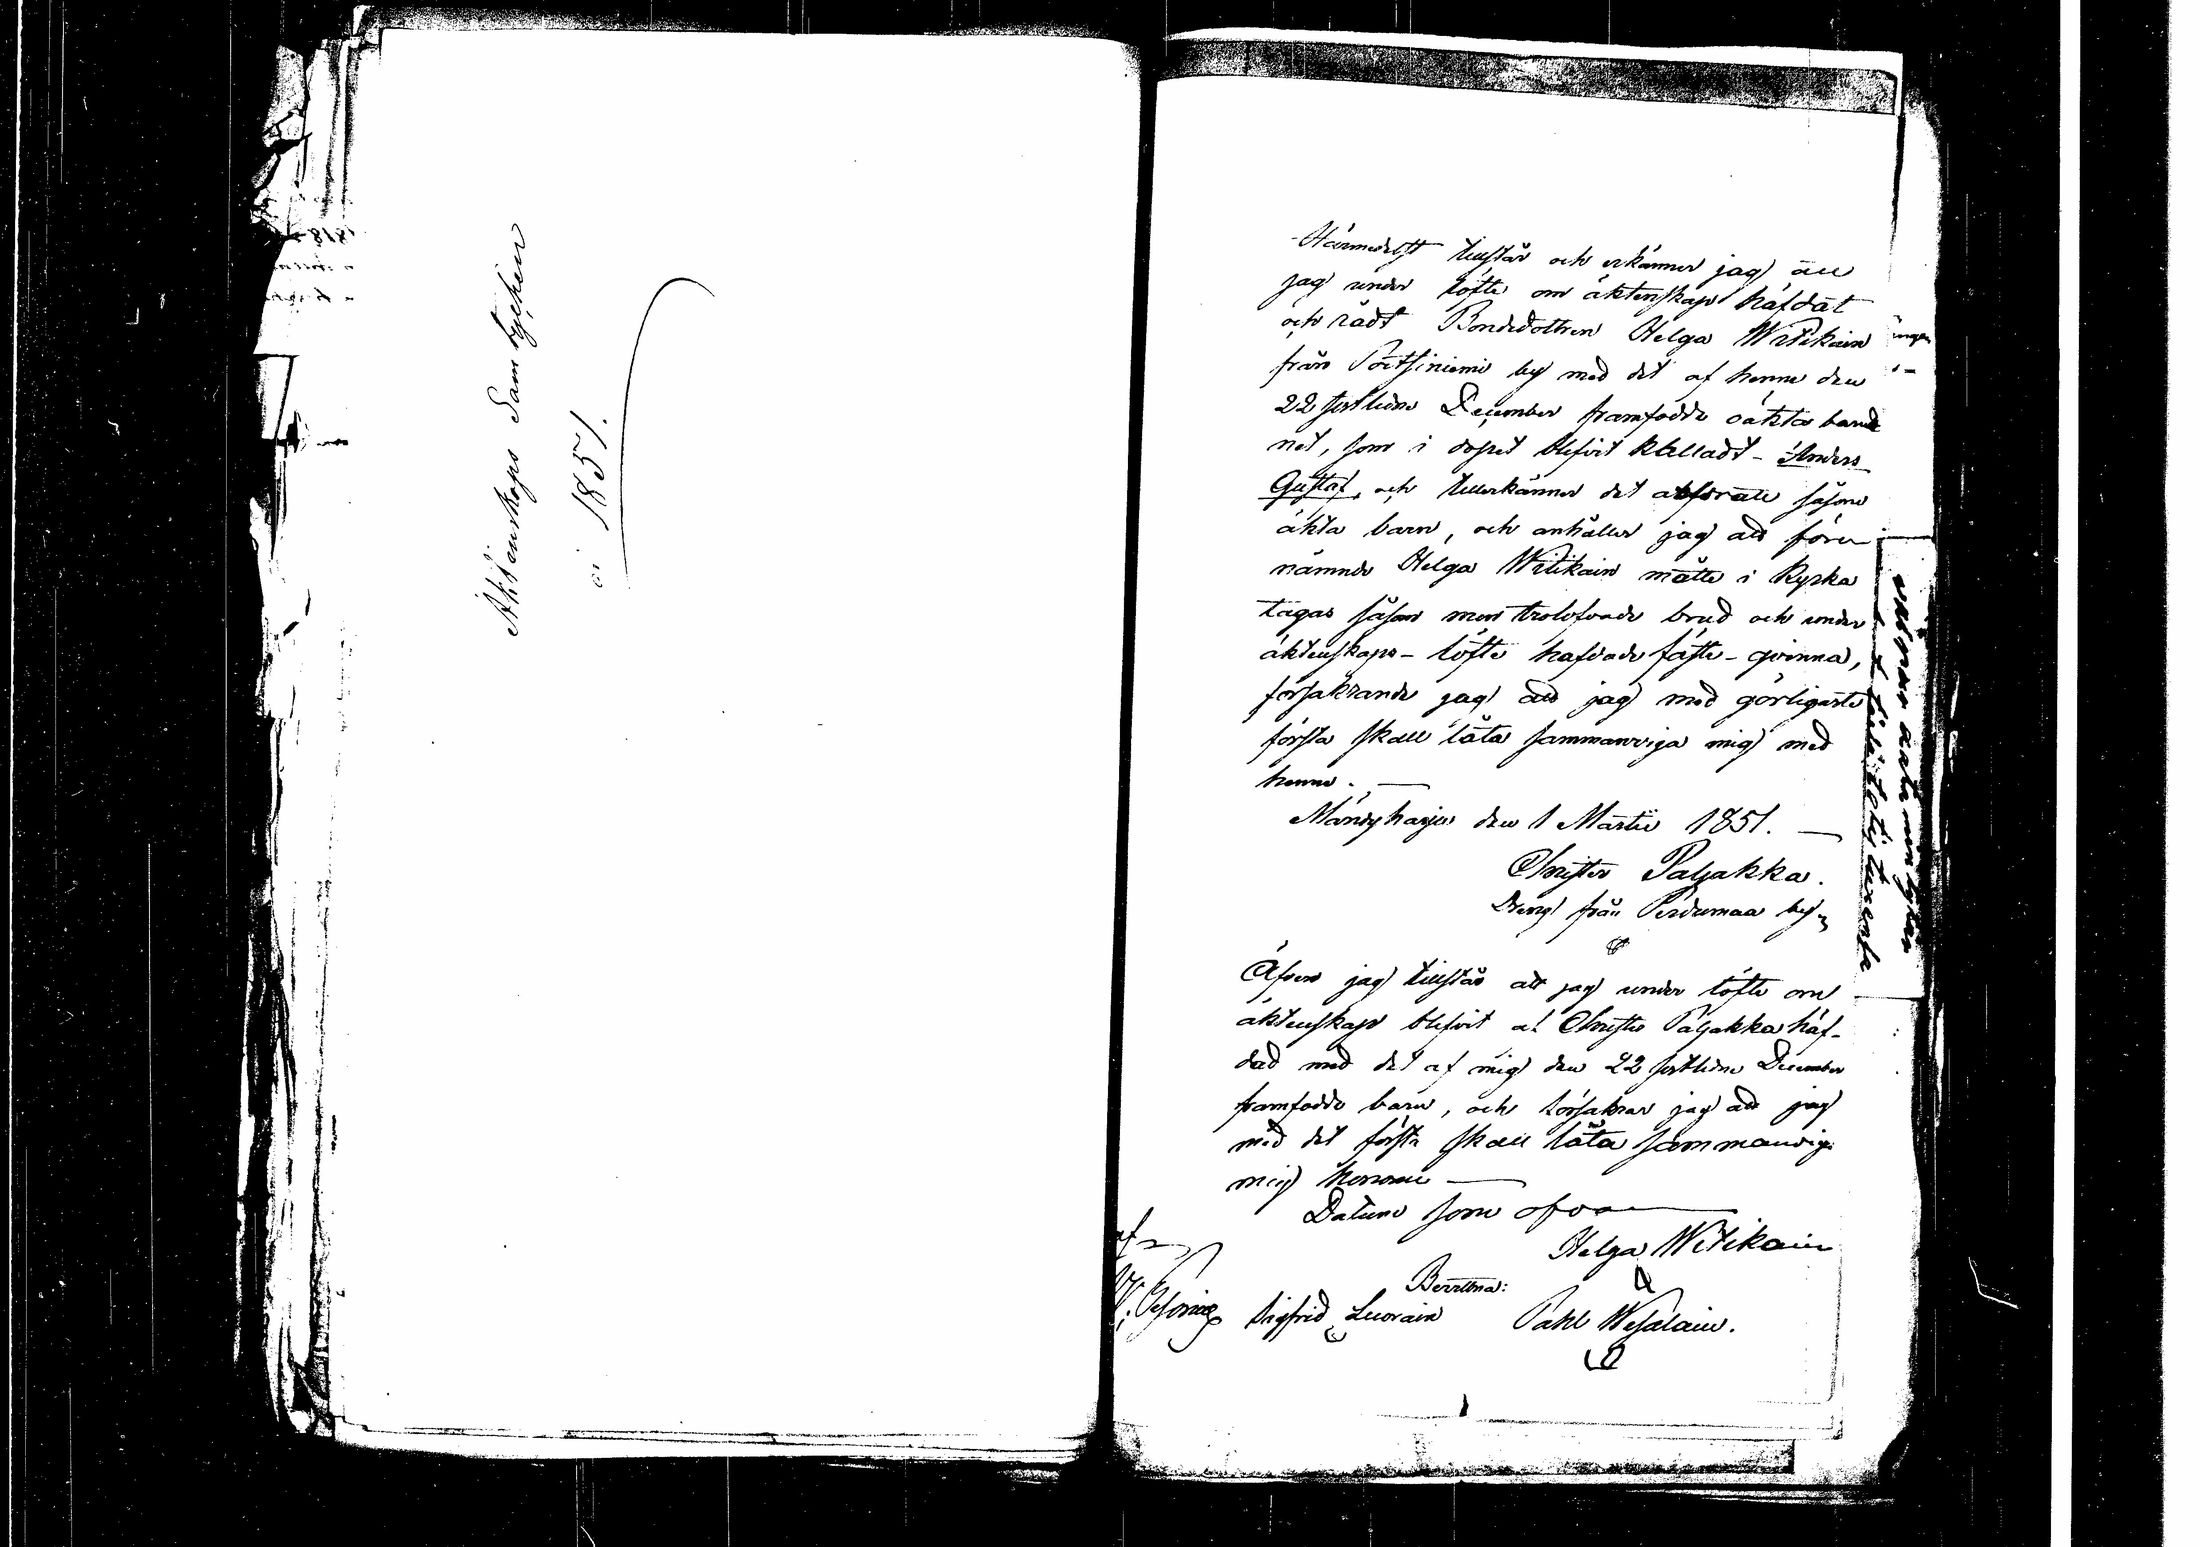 Äktenskaps Samtycken
1851.
Härmedelst tillstår och erkänner jag att
jag under löfte om äktenskap häfdat
och rådt Bondedottren Helga Witikain
från Pöitsiniemi by med det af henne den
22 sistlidne December framfödde oäkta barn
net, som i dopet blifvit kalladt - Anders
Gustaf, och tillerkänner det arfsrätt såsom
äkta barn, och anhåller jag att före
nämnde Helga Witikain måtte i Kyrka
tagas såsom min trolofvade brud och under
äktenskaps-löfte häfdade fäste-qvinna,
försäkrande jag att jag med görligaste
första skall låta sammanviga mig med
henne. —
Mändyharju den 1 Martii 1851. —
Christer Paljakka.
Dreng från Perdumaa by
Äfven jag tillstår att jag under löfte om
äktenskap blifvit af Christer Paljakka häf-
dad med det af mig den 22 sistlidne December
framfödde barn, och försäkrar jag att jag
med det första skall låta sammanviga
mig honom —
Datum som ofvan
Helga Witikain
Bevittna:
Sigfrid Luorain Påhl Wesalain.